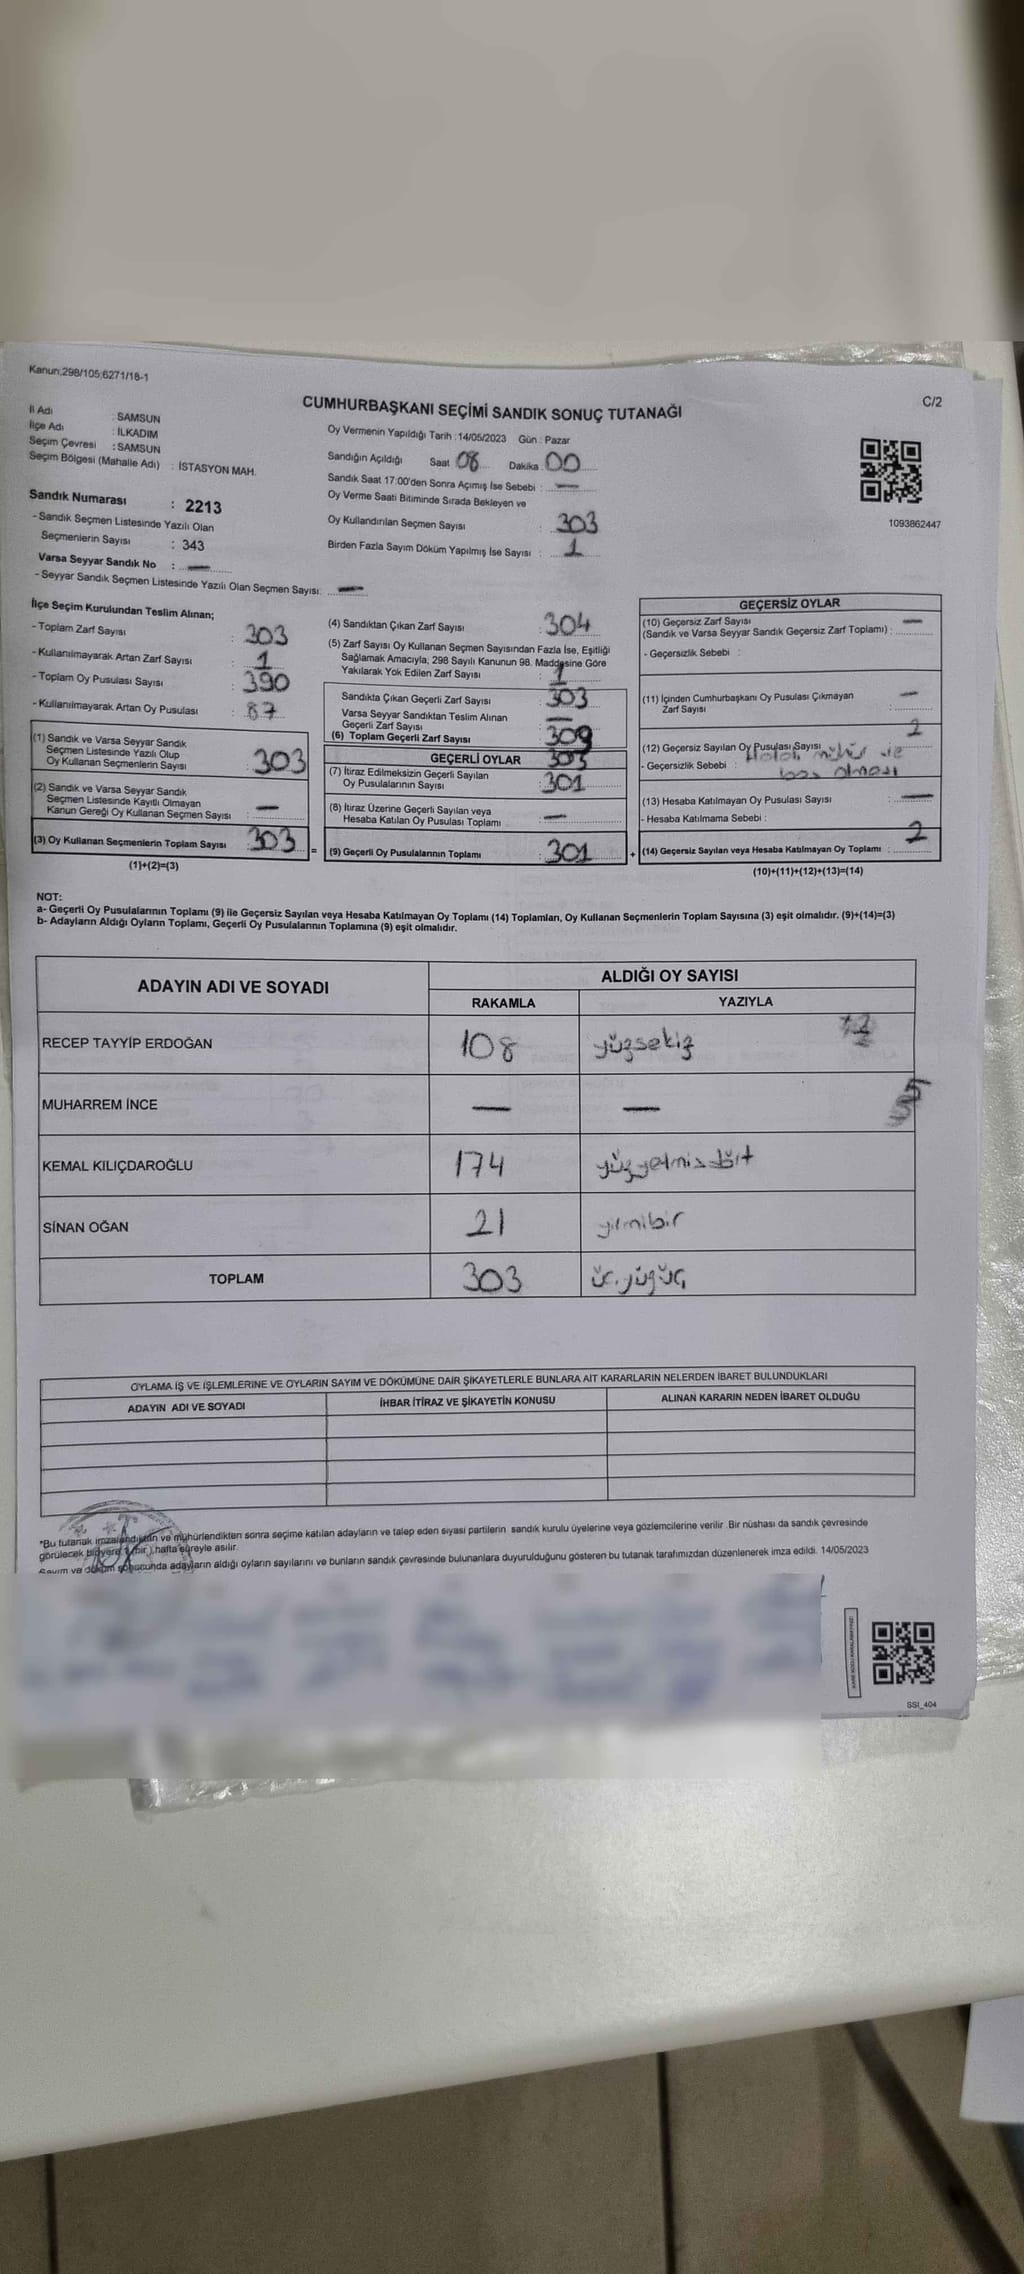 Kanun;298/105;6271/18-1
C/2
CUMHURBAŞKANI SEÇİMİ SANDIK SONUÇ TUTANAĞI
İl Adı : SAMSUN
İlçe Adı : İLKADIM
Seçim Çevresi : SAMSUN
Seçim Bölgesi (Mahalle Adı) : İSTASYON MAH.
Sandık Numarası : 2213
- Sandık Seçmen Listesinde Yazılı Olan
Seçmenlerin Sayısı : 343
Varsa Seyyar Sandık No : —
- Seyyar Sandık Seçmen Listesinde Yazılı Olan Seçmen Sayısı: —
Oy Vermenin Yapıldığı Tarih : 14/05/2023 Gün : Pazar
Sandığın Açıldığı Saat 08 Dakika : 00
Sandık Saat 17:00'den Sonra Açımış İse Sebebi : —
Oy Verme Saati Bitiminde Sırada Bekleyen ve
Oy Kullandırılan Seçmen Sayısı : 303
Birden Fazla Sayım Döküm Yapılmış İse Sayısı : 1
1093862447
İlçe Seçim Kurulundan Teslim Alınan;
- Toplam Zarf Sayısı : 303
- Kullanılmayarak Artan Zarf Sayısı : 1
- Toplam Oy Pusulası Sayısı : 390
- Kullanılmayarak Artan Oy Pusulası : 87
(1) Sandık ve Varsa Seyyar Sandık
Seçmen Listesinde Yazılı Olup
Oy Kullanan Seçmenlerin Sayısı : 303
(2) Sandık ve Varsa Seyyar Sandık
Seçmen Listesinde Kayıtlı Olmayan
Kanun Gereği Oy Kullanan Seçmen Sayısı : —
(3) Oy Kullanan Seçmenlerin Toplam Sayısı : 303
(1)+(2)=(3)
(4) Sandıktan Çıkan Zarf Sayısı : 304
(5) Zarf Sayısı Oy Kullanan Seçmen Sayısından Fazla İse, Eşitliği
Sağlamak Amacıyla, 298 Sayılı Kanunun 98. Maddesine Göre
Yakılarak Yok Edilen Zarf Sayısı : 1
Sandıkta Çıkan Geçerli Zarf Sayısı : 303
Varsa Seyyar Sandıktan Teslim Alınan
Geçerli Zarf Sayısı : —
(6) Toplam Geçerli Zarf Sayısı : 309
303
GEÇERLİ OYLAR
(7) İtiraz Edilmeksizin Geçerli Sayılan
Oy Pusulalarının Sayısı : 301
(8) İtiraz Üzerine Geçerli Sayılan veya
Hesaba Katılan Oy Pusulası Toplamı : —
= (9) Geçerli Oy Pusulalarının Toplamı : 301
GEÇERSİZ OYLAR
(10) Geçersiz Zarf Sayısı —
(Sandık ve Varsa Seyyar Sandık Geçersiz Zarf Toplamı) :
- Geçersizlik Sebebi :
(11) İçinden Cumhurbaşkanı Oy Pusulası Çıkmayan —
Zarf Sayısı :
(12) Geçersiz Sayılan Oy Pusulası Sayısı : 2
- Geçersizlik Sebebi : Hatalı mühür ve
boş olması
(13) Hesaba Katılmayan Oy Pusulası Sayısı : —
- Hesaba Katılmama Sebebi :
+ (14) Geçersiz Sayılan veya Hesaba Katılmayan Oy Toplamı : 2
(10)+(11)+(12)+(13)=(14)
NOT:
a- Geçerli Oy Pusulalarının Toplamı (9) ile Geçersiz Sayılan veya Hesaba Katılmayan Oy Toplamı (14) Toplamları, Oy Kullanan Seçmenlerin Toplam Sayısına (3) eşit olmalıdır. (9)+(14)=(3)
b- Adayların Aldığı Oyların Toplamı, Geçerli Oy Pusulalarının Toplamına (9) eşit olmalıdır.
ADAYIN ADI VE SOYADI
ALDIĞI OY SAYISI
RAKAMLA YAZIYLA
RECEP TAYYİP ERDOĞAN 108 yüzsekiz
MUHARREM İNCE — —
KEMAL KILIÇDAROĞLU 174 yüzyetmişdört
SİNAN OĞAN 21 yirmibir
TOPLAM 303 üçyüzüç
OYLAMA İŞ VE İŞLEMLERİNE VE OYLARIN SAYIM VE DÖKÜMÜNE DAİR ŞİKAYETLERLE BUNLARA AİT KARARLARIN NELERDEN İBARET BULUNDUKLARI
ADAYIN ADI VE SOYADI İHBAR İTİRAZ VE ŞİKAYETİN KONUSU ALINAN KARARIN NEDEN İBARET OLDUĞU
*Bu tutanak imzalandıktan ve mühürlendikten sonra seçime katılan adayların ve talep eden siyasi partilerin sandık kurulu üyelerine veya gözlemcilerine verilir. Bir nüshası da sandık çevresinde
görülecek bir yere (bir) hafta süreyle asılır.
Sayım ve döküm sonucunda adayların aldığı oyların sayılarını ve bunların sandık çevresinde bulunanlara duyurulduğunu gösteren bu tutanak tarafımızdan düzenlenerek imza edildi. 14/05/2023
SSI_404